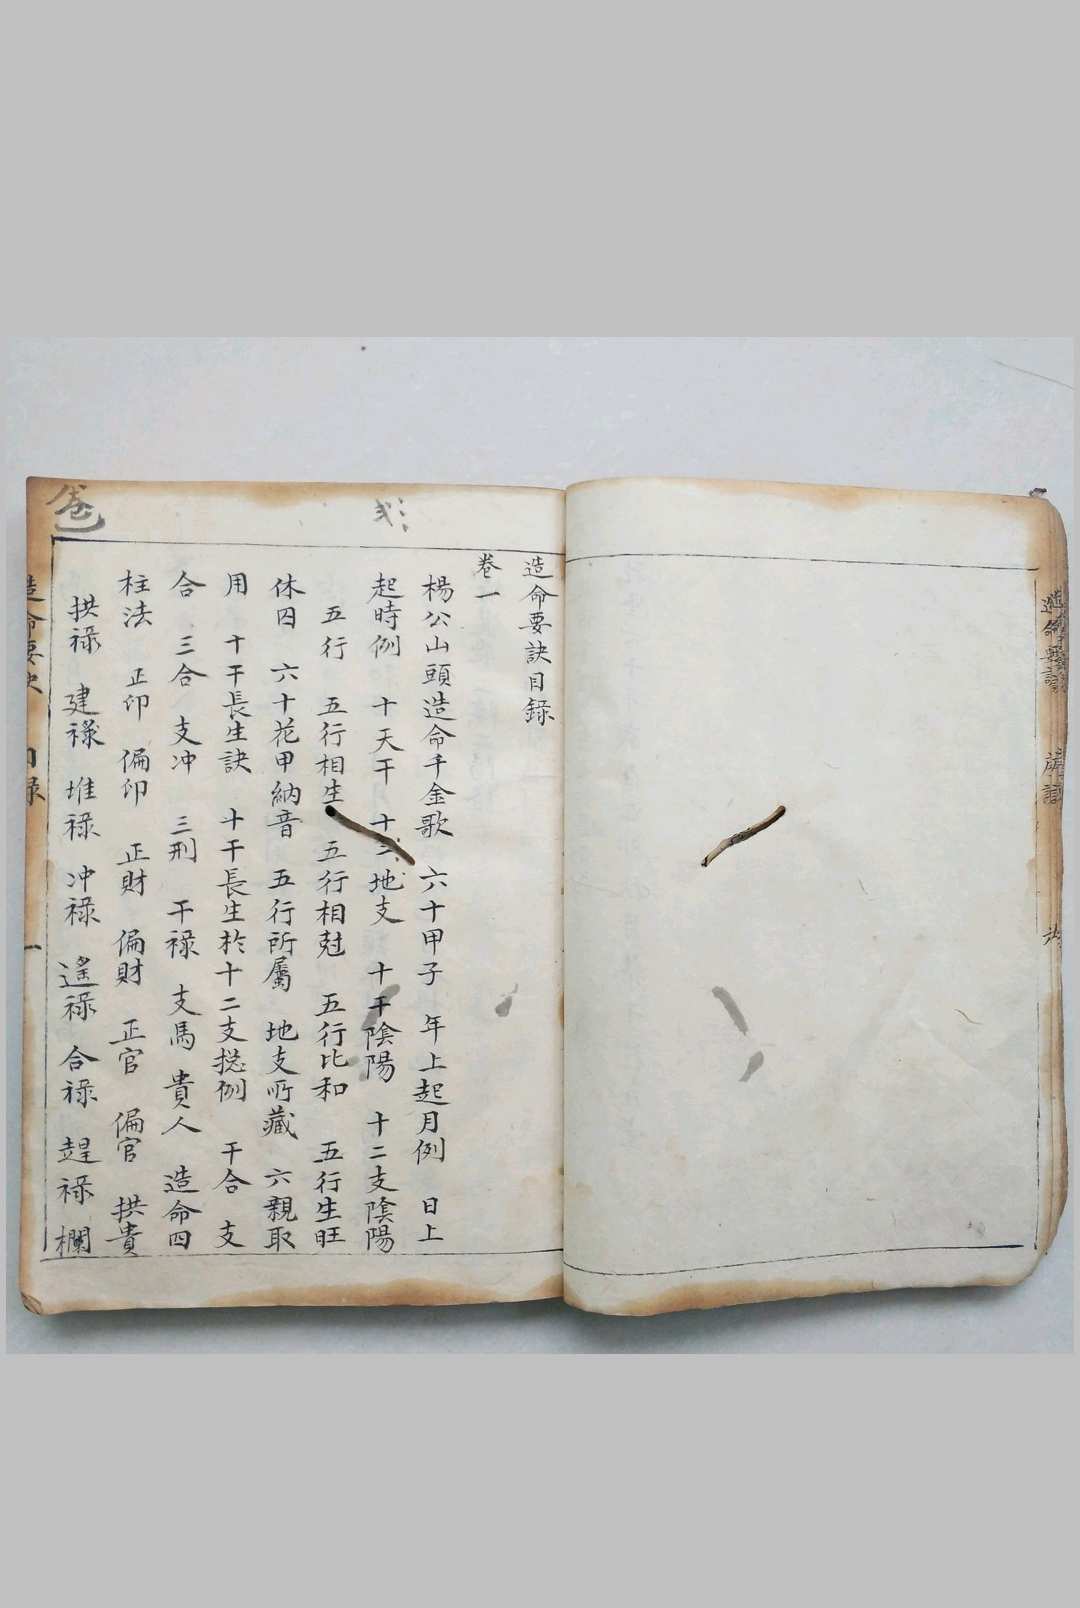 造命要訣目錄
卷一
楊公山頭造命千金歌　六十甲子　年上起月例　日上
起時例　十天干　十二地支　十干陰陽　十二支陰陽
五行　五行相生　五行相尅　五行比和　五行生旺
休囚　六十花甲納音　五行所屬　地支所藏　六親取
用　十干長生訣　十干長生於十二支捴例　干合　支
合　三合　支冲　三刑　干祿　支馬　貴人　造命四
柱法　正印　偏印　正財　偏財　正官　偏官　拱貴
拱祿　建祿　堆祿　冲祿　遙祿　合祿　趕祿　欄
造命要訣　目錄　一